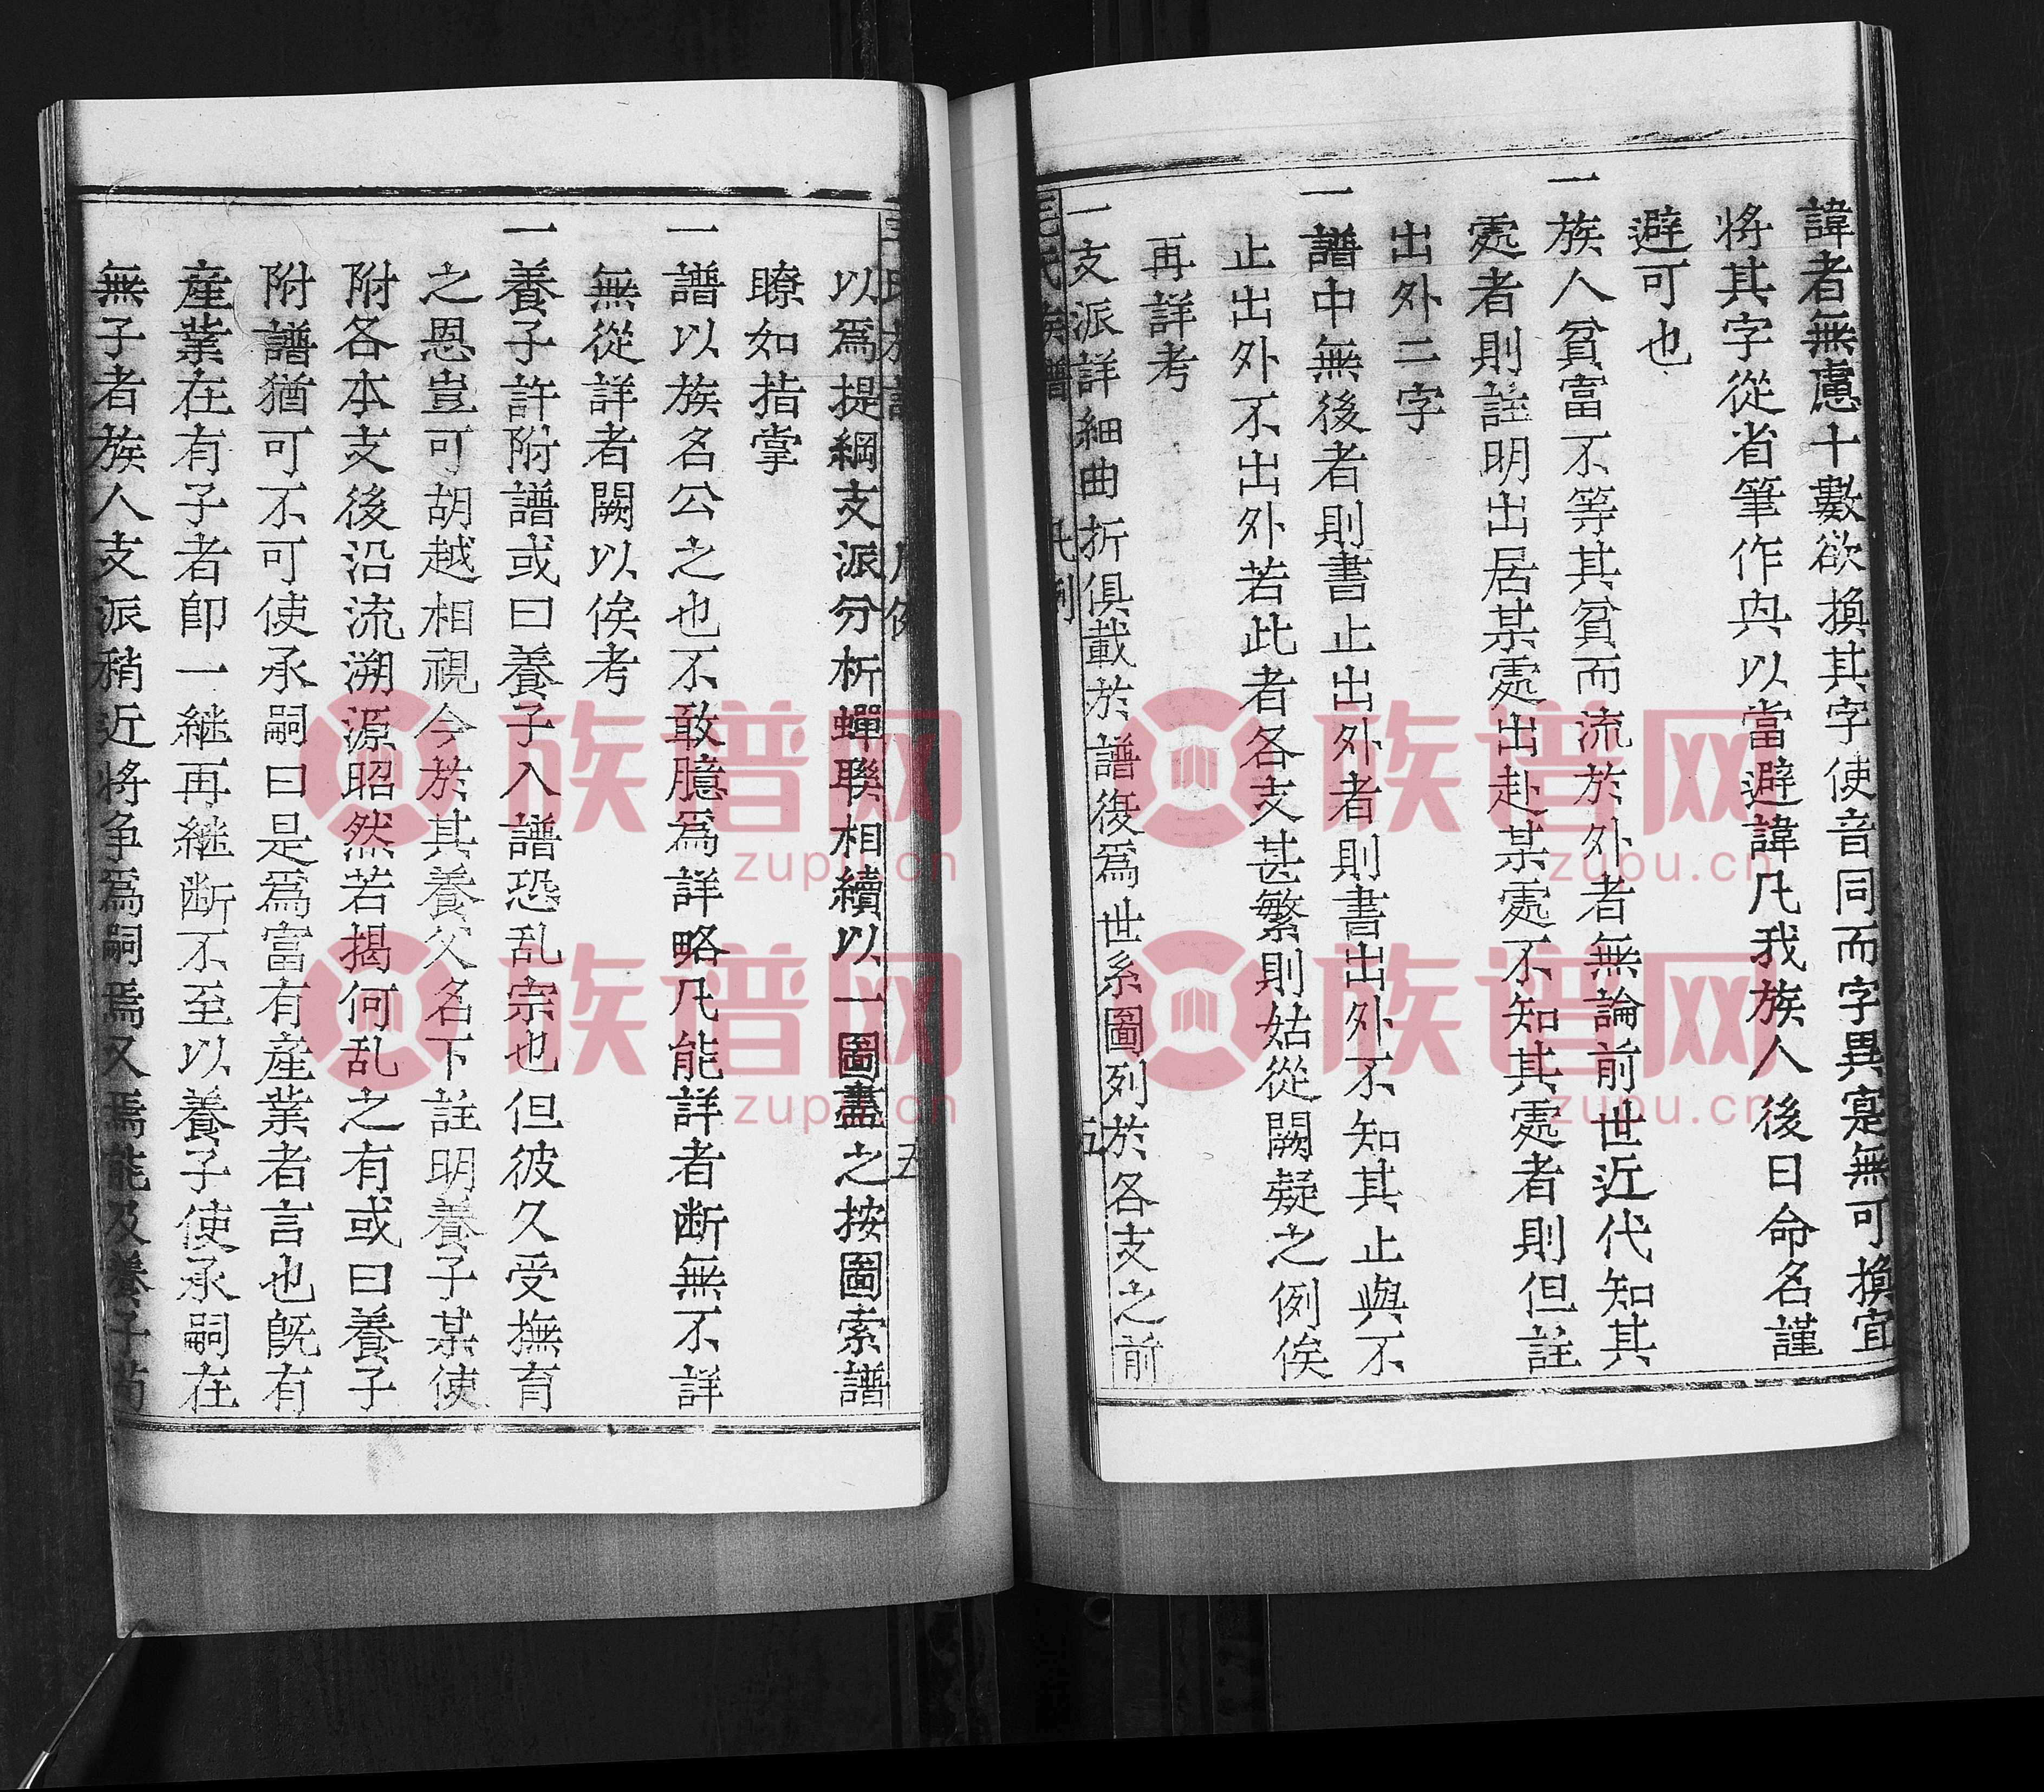 諱者無慮十數欲換其字使音同而字異寔無可換宜
將其字從省筆作㐮以當避諱凡我族人後日命名謹
避可也
一族人貧富不等其貧而流於外者無論前世近代知其
處者則註明出居某處出赴某處不知其處者則但註
出外二字
一譜中無後者則書止出外者則書出外不知其止與不
止出外不出外若此者各支甚繁則姑從闕疑之例俟
再詳考
一支派詳細曲折俱載於譜後爲世系圖列於各支之前
氏族譜 凡例 五
以爲提綱支派分析蟬聯相續以一圖盡之按圖索譜
瞭如指掌
一譜以族名公之也不敢臆爲詳略凡能詳者断無不詳
無從詳者闕以俟考
一養子許附譜或曰養子入譜恐乱宗也但彼久受撫育
之恩豈可胡越相視今於其養父名下註明養子某使
附各本支後沿流溯源昭然若揭何乱之有或曰養子
附譜猶可不可使承嗣曰是爲富有産業者言也旣有
産業在有子者卽一継再継断不至以養子使承嗣在
無子者族人支派稍近將争爲嗣焉又焉能及養子苟
族譜网
zupu.cn
族譜网
zupu.cn
族譜网
zupu.cn
族譜网
zupu.cn